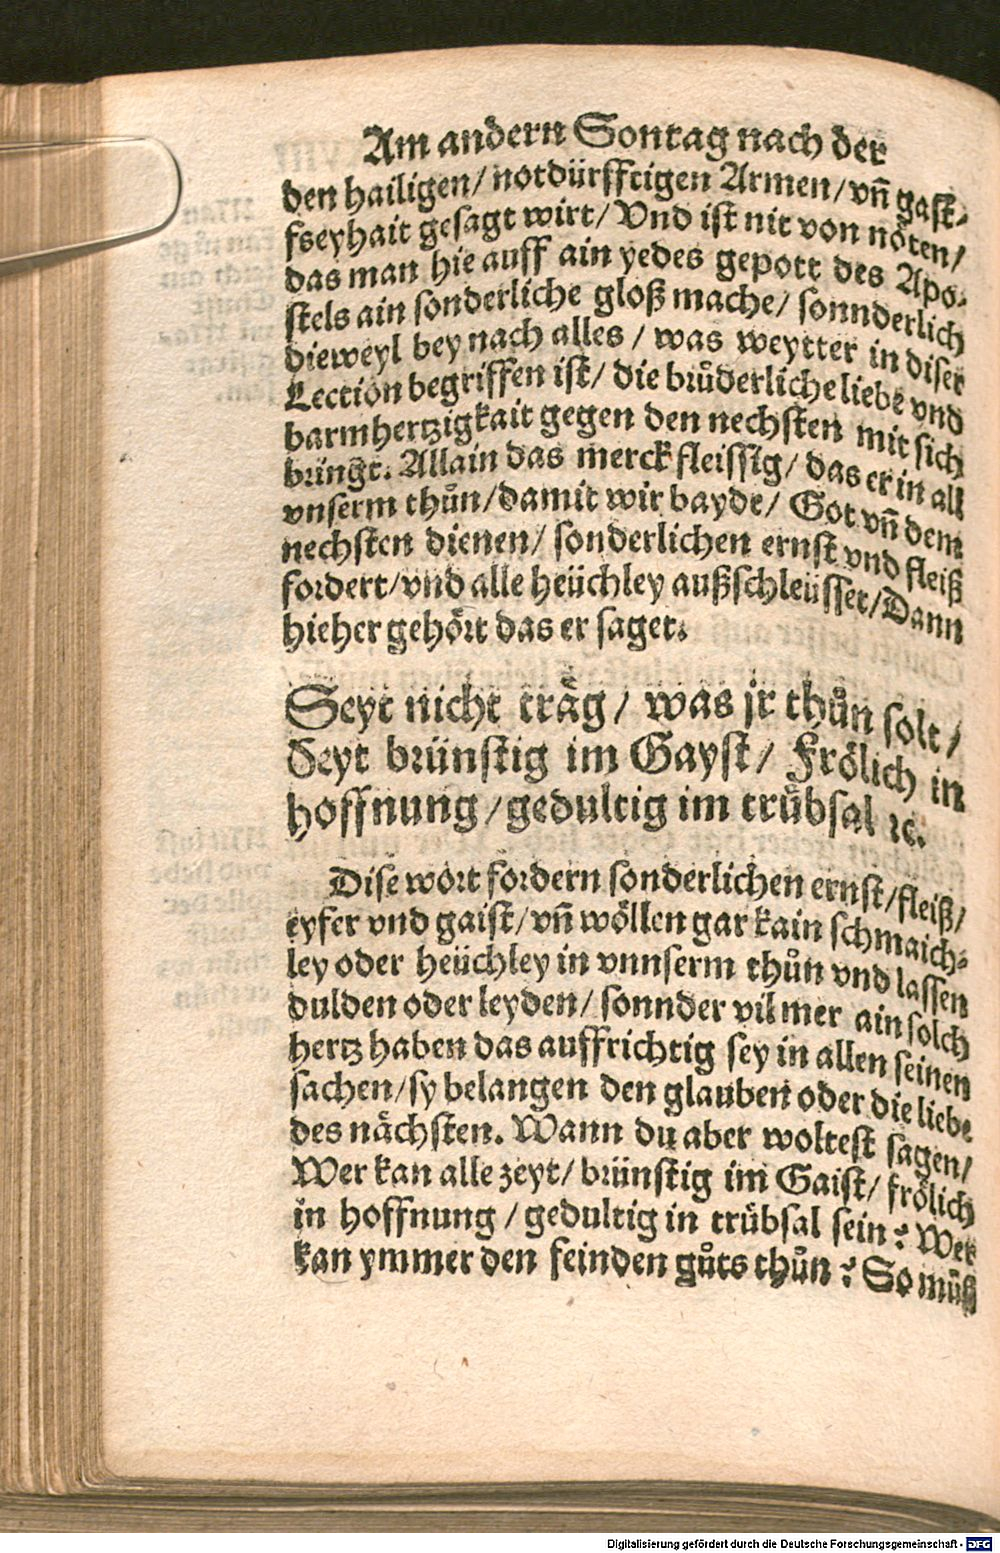 Am andern Sontag nach der
den hailigen/ notdürfftigen Armen/ vñ gast-
freyhait gesagt wirt/ Vnd ist nit von nöten/
das man hie auff ain yedes gepott des Apo-
stels ain sonderliche gloß mache/ sonnderlich
dieweyl bey nach alles / was weytter in diser
Lection begriffen ist/ die brůderliche liebe vnd
barmhertzigkait gegen den nechsten mit sich
bringt. Allain das merck fleissig/ das er in all
vnserm thůn/ damit wir bayde/ Got vñ dem
nechsten dienen/ sonderlichen ernst vnd fleiß
fordert/ vnd alle heüchley außschleüsset/ Dann
hieher gehört das er saget.
Seyt nicht träg/ was jr thůn solt/
Seyt brünstig im Gayst/ Frölich in
hoffnung/ gedultig im trübsal ꝛc.
Dise wort fordern sonderlichen ernst/ fleiß/
eyfer vnd gaist/ vñ wöllen gar kain schmaich-
ley oder heüchley in vnnserm thůn vnd lassen
dulden oder leyden/ sonnder vil mer ain solch
hertz haben das auffrichtig sey in allen seinen
sachen/ sy belangen den glauben oder die liebe
des nächsten. Wann du aber woltest sagen/
Wer kan alle zeyt/ brünstig im Gaist/ frölich
in hoffnung / gedultig in trübsal sein? Wer
kan ymmer den feinden gůts thůn? So můß
Digitalisierung gefördert durch die Deutsche Forschungsgemeinschaft - DFG